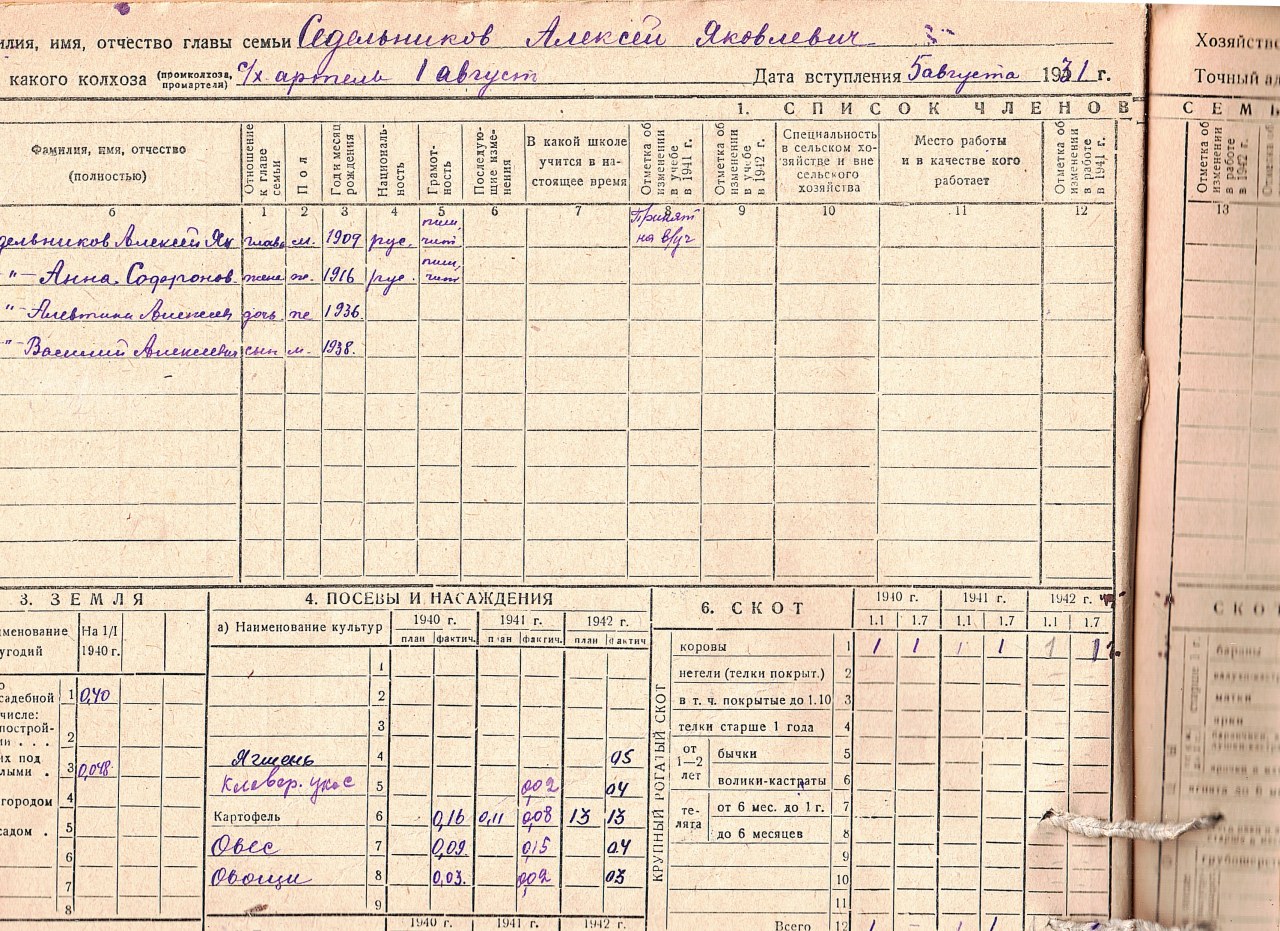 илия, имя, отчество главы семьи Седельников Алексей Яковлевич
какого колхоза (промколхоза, промартели) с/х артель 1 август Дата вступления 5 августа 1931 г.
1. СПИСОК ЧЛЕНОВ
Фамилия, имя, отчество (полностью) Отношение к главе семьи Пол Год и месяц рождения Националь- ность Грамот- ность Последую- щие изме- нения В какой школе учится в на- стоящее время Отметка об изменении в учебе в 1941 г. Отметка об изменении в учебе в 1942 г. Специальность в сельском хо- зяйстве и вне сельского хозяйства Место работы и в качестве кого работает Отметка об изменении в работе в 1941 г.
б 1 2 3 4 5 6 7 8 9 10 11 12
дельников Алексей Як глава м. 1909 рус. пиш, чит Принят на в/уч
" Анна Софронов. жена ж. 1916 рус. пиш, чит
" Алевтина Алексеев дочь же 1936.
" Василий Алексеевич сын м. 1938.
3. ЗЕМЛЯ
именование угодий На 1/I 1940 г.
садебной 1 0,40
числе:
построй-
ии . . . 2
их под
лыми . 3 0,048
городом 4
садом . 5
6
7
8
4. ПОСЕВЫ И НАСАЖДЕНИЯ
а) Наименование культур 1940 г. 1941 г. 1942 г.
план фактич. план фактич. план фактич.
1
2
3
Ячмень 4 05
Клевер. укос 5 002 04
Картофель 6 0,16 0,11 0,08 13 13
Овес 7 0,09 0,15 04
Овощи 8 0,03. 002 03
9
1940 г. 1941 г. 1942 г.
6. СКОТ 1940 г. 1941 г. 1942 г.
1.1 1.7 1.1 1.7 1.1 1.7
КРУПНЫЙ РОГАТЫЙ СКОТ
коровы 1 1 1 1 1 1 1
нетели (телки покрыт.) 2
в т. ч. покрытые до 1.10 3
телки старше 1 года 4
от 1—2 лет бычки 5
волики-кастраты 6
те- лята от 6 мес. до 1 г. 7
до 6 месяцев 8
9
10
11
Всего 12 1 - 1 1 1
Хозяйств
Точный ад
СЕМЬ
Отметка об изменении в работе в 1942 г.
13
СКО
бараны
матки
ярки